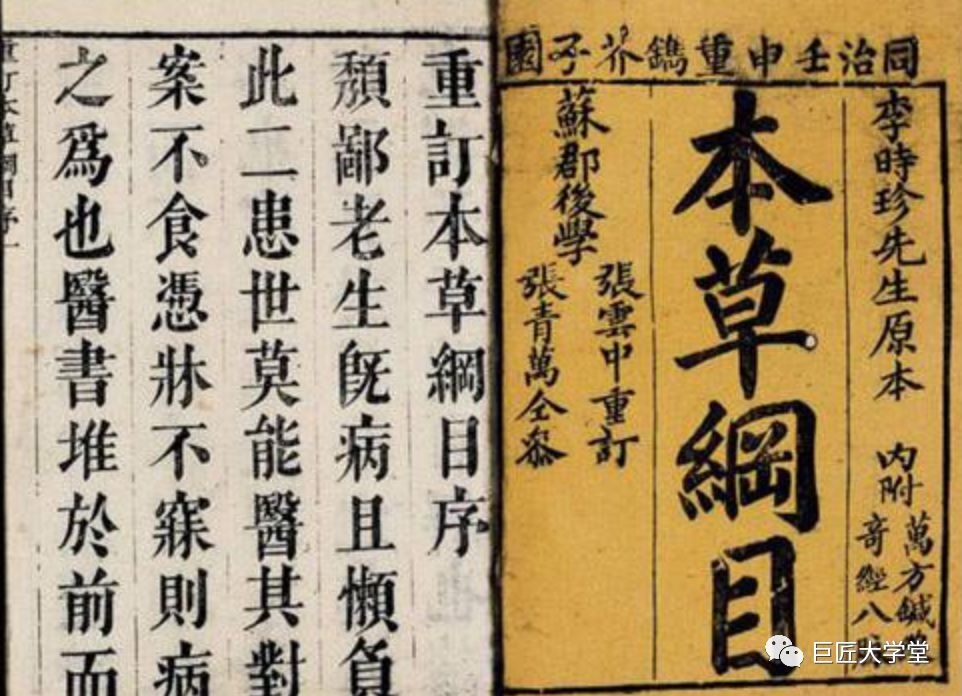 同治壬申重鐫芥子園
李時珍先生原本 內附
萬方鍼
奇經八
本草綱目
蘇郡後學
張雲中重訂
張青萬仝叅
重訂本草綱目序
頹鄙老生旣病且懶負
此二患世莫能醫其對
案不食憑牀不寐則病
之爲也醫書堆於前而
重訂本草綱目序一
巨匠大学堂